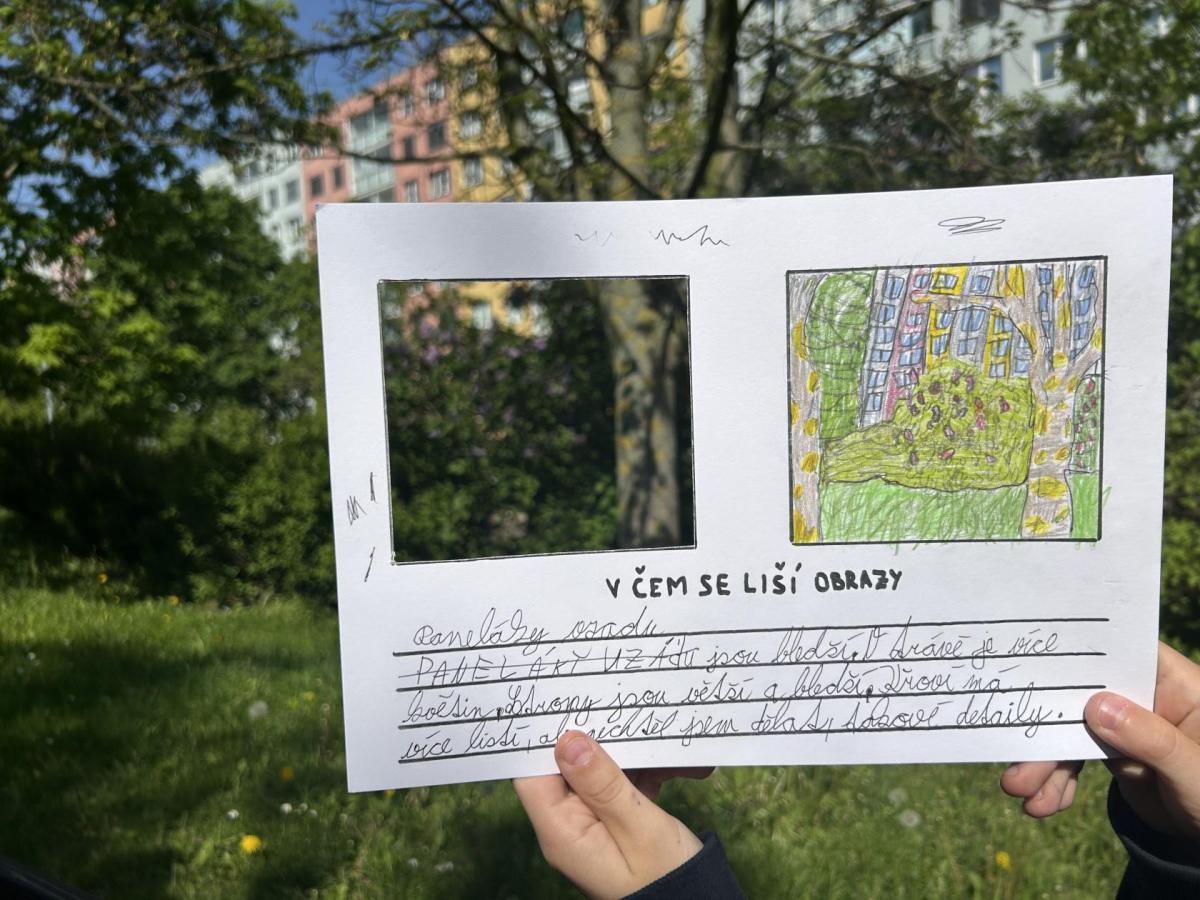 V ČEM SE LIŠÍ OBRAZY
Paneláky vzadu
PANELÁKY UZÁDU jsou bledší. V trávě je více
květin. Stromy jsou větší a bledší. Křoví má
více listí, ale nechtěl jsem dělat, takové detaily.